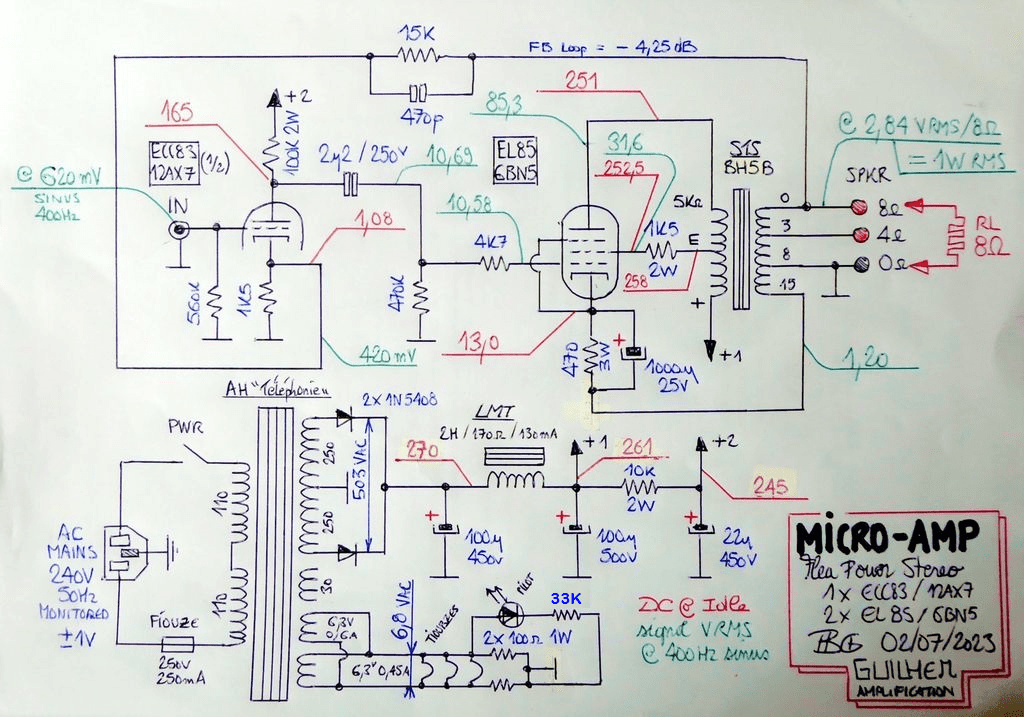 15K
FB Loop = - 4,25 dB
470p
165
+2
100K 2W
ECC83
12AX7 (1/2)
2µ2 / 250V
10,69
85,3
251
EL85
6BN5
31,6
252,5
S1S
BH5B
@ 2,84 VRMS/8Ω
= 1W RMS
SPKR
@ 620 mV
SINUS
400Hz
IN
1,08
10,58
4K7
5KΩ
1K5
2W
E
258
0
3
8
15
8Ω
4Ω
0Ω
RL
8Ω
560K
1K5
470K
420 mV
13,0
470
3W
+
1000µ
25V
+
+1
1,20
AH "Téléphonie"
2x 1N5408
PWR
250
250
503 VAC
270
LMT
2H / 170Ω / 130mA
+1
261
+2
10K
2W
245
110
110
AC
MAINS
240V
50Hz
MONITORED
±1V
Fiouze
250V
250mA
+
100µ
450V
+
100µ
500V
+
22µ
450V
30
6,3V
0,6A
6,3V 0,45A
6,8 VAC
Pilot
33K
2x 100Ω 1W
DC @ Idle
signal VRMS
@ 400Hz sinus
MiCRO-AMP
Flea Power Stereo
1x ECC83 / 12AX7
2x EL85 / 6BN5
02/07/2023
GUILHEM
AMPLIFICATION